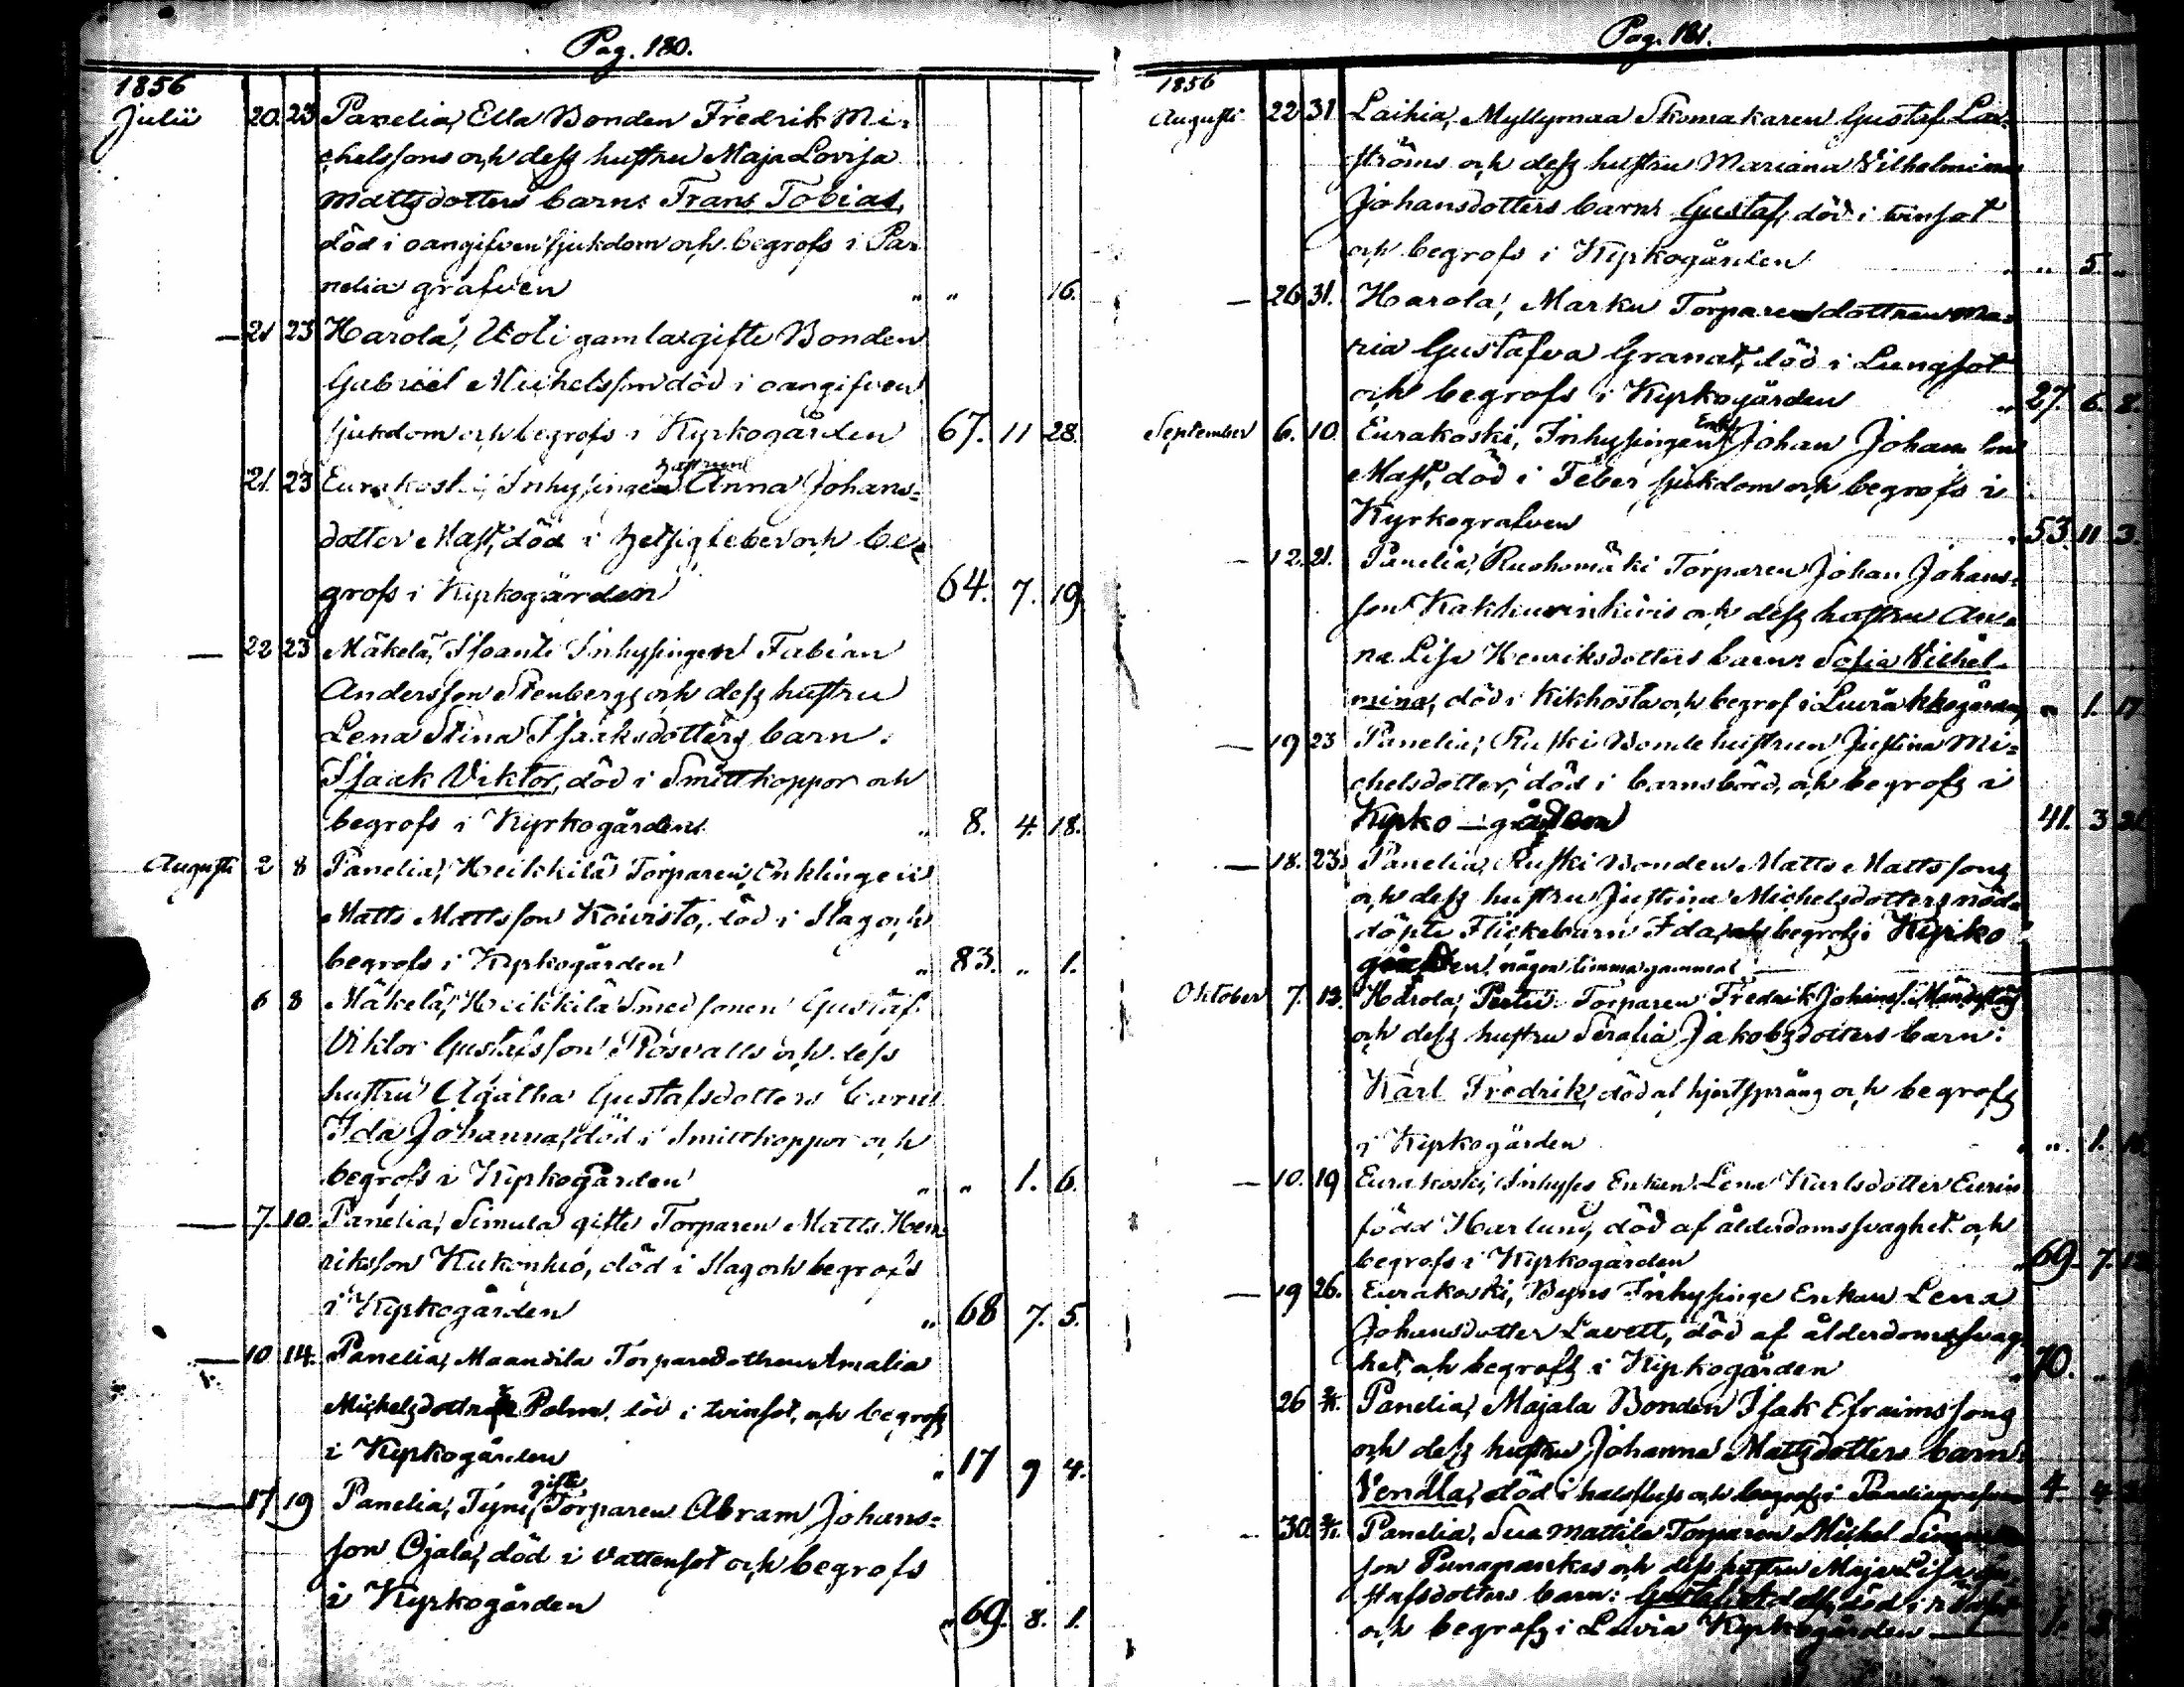 Pag. 180.
1856
Julii 20. 23 Panelia, Ella Bonden Fredrik Mi-
chelssons och dess hustru Maja Lovisa
Mattsdotters barn: Frans Tobias,
död i oangifven sjukdom och begrofs i Pa-
nelia grafven " " 16.
— 21 23 Harola, Uoti gamla gifte Bonden
Gabriel Michelsson död i oangifven
sjukdom och begrofs i Kyrkogården 67. 11 28.
21. 23 Eurakoski, Inhysingen hustrun Anna Johans-
dotter Mast, död i hetsig feber och be-
grofs i Kyrkogården 64. 7. 19
— 22 23 Mäkelä, Isoanti Inhysingen Fabian
Andersson Stenbergs och dess hustru
Lena Stina Isaaksdotters barn:
Isaak Viktor, död i Smittkoppor och
begrofs i Kyrkogården " 8. 4. 18.
Augusti 2 8 Panelia, Heikkilä Torparen, Enklingen
Matts Mattsson Koivisto, död i Slag och
begrofs i Kyrkogården " 83. " 1.
6 8 Mäkelä, Heikkilä Smed sonen Gustaf
Viktor Gustafsson Rosvalls och dess
hustru Agatha Gustafsdotters barn
Ida Johanna, död i Smittkoppor och
begrofs i Kyrkogården " " 1. 6.
— 7. 10. Panelia, Simula gifte Torparen Matts Hen-
riksson Kukonkio, död i Slag och begrofs
i Kyrkogården " 68 7. 5.
— 10 14. Panelia, Maandila Torparedottren Amalia
Michelsdotter Palm, död i tvinsot, och begrofs
i Kyrkogården " 17 9 4.
— 17 19 Panelia, Tyni, gifte Torparen Abram Johans-
son Ojala, död i Vattensot och begrofs
i Kyrkogården " 69. 8. 1.
Pag. 181.
1856
Augusti 22 31 Laihia, Myllymaa Skomakaren Gustaf
ströms och dess hustru Mariana Vilhelmina
Johansdotters barn: Gustaf, död i tvinsot
och begrofs i Kyrkogården " " 5. "
— 26 31. Harola, Marku Torparen dottren Ma-
ria Gustafva Granat, död i Lungsot
och begrofs i Kyrkogården " 27. 6. 8.
September 6. 10. Eurakoski, Inhysingen Enkl. Johan Johansson
Mast, död i Feber sjukdom och begrofs i
Kyrkografven " 53. 11 3.
— 12. 21. Panelia, Ruohomäki Torparen Johan Johans-
son och dess hustru An-
na Lisa Henriksdotters barn: Sofia Vilhel-
mina, död i Kikhosta och begrof i " 1. 17
— 19 23 Panelia, Ruski Bonde hustrun Justina Mi-
chelsdotter, död i barnsbörd, och begrofs i
Kyrko — gården 41. 3 21.
— 18. 23. Panelia, Ruski Bonden Matts Mattssons
och dess hustru Justina Michelsdotters nöd-
döpte Flickebarn Ida, begrofs i Kyrko
gården, någon timma gammal. —
Oktober 7. 12. Harola, Perttu Torparen Fredrik Johanss.
och dess hustru Serafia Jakobsdotters barn:
Karl Fredrik, död af hjertsprång och begrofs
i Kyrkogården " " 1.
— 10. 19 Eurakoski, Inhyses Enkan Lena Karlsdotter Eurin
född Harlund, död af ålderdomssvaghet och
begrofs i Kyrkogården " 69. 7.
— 19 26. Eurakoski, Byns Inhysinge Enkan Lena
Johansdotter Lavett, död af ålderdomssvag-
het, och begrofs i Kyrkogården " 70. "
26 Panelia, Majala Bonden Isak Efraimssons
och dess hustru Johanna Mattsdotters barn:
Vendla, död i halsfluss och begrofs i Paneliagrafven 4. 4
— 30 Panelia, Sua Mattila Torparen Michel
son Punapaukas och dess hustru Maja Lisa Gu-
stafsdotters barn: död i
och begrofs i Luvia Kyrkogården — 1.